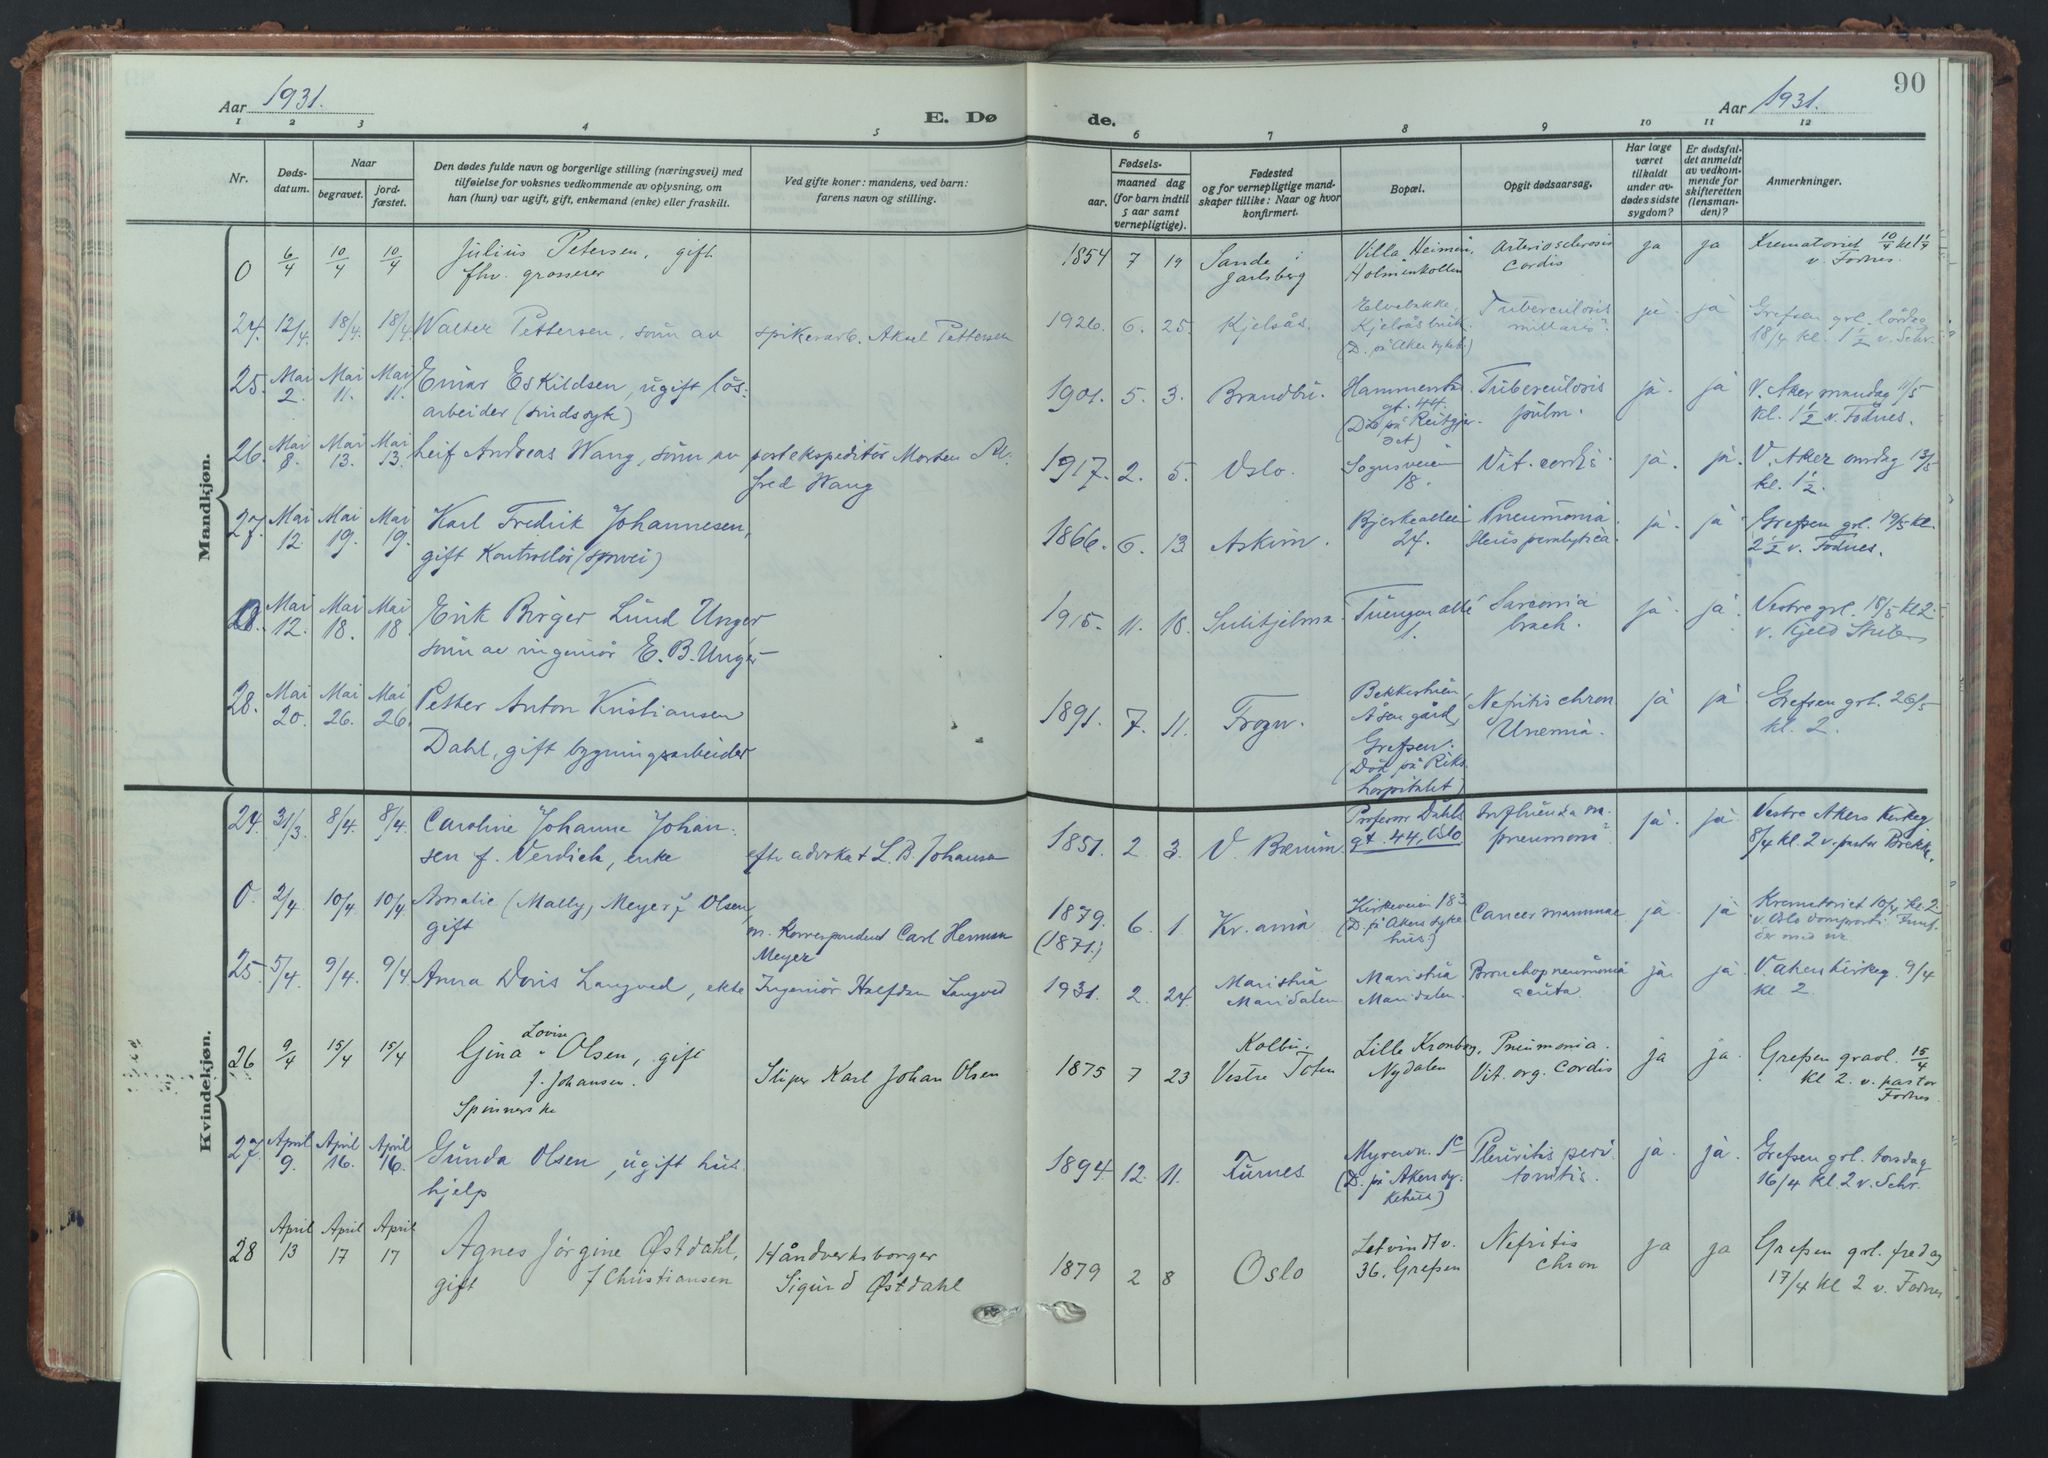 90
Aar 1931.
E. Dø
de.
Aar 1931.
1 2 3 4 5 6 7 8 9 10 11 12
Nr.
Døds-
datum.
Naar
begravet.
jord-
fæstet.
Den dødes fulde navn og borgerlige stilling (næringsvei) med
tilføielse for voksnes vedkommende av oplysning, om
han (hun) var ugift, gift, enkemand (enke) eller fraskilt.
Ved gifte koner: mandens, ved barn:
farens navn og stilling.
Fødsels-
aar.
maaned dag
(for barn indtil
5 aar samt
vernepligtige).
Fødested
og for vernepligtige mand-
skaper tillike: Naar og hvor
konfirmert.
Bopæl.
Opgit dødsaarsag.
Har læge
været
tilkaldt
under av-
dødes sidste
sygdom?
Er dødsfal-
det anmeldt
av vedkom-
mende for
skifteretten
(lensman-
den)?
Anmerkninger.
Mandkjøn.
0 6/4 10/4 10/4 Julius Petersen, gift
fhv. grosserer
1854 7 19 Sande i
Jarlsberg
Villa Heimen,
Holmenkollen
Arteriosclerosis
Cordis
ja ja Krematoriet 10/4 kl 1 1/4
v. Fodnes.
24. 12/4. 18/4. 18/4. Walter Pettersen, sønn av spikerarb. Aksel Pettersen
1926. 6. 25. Kjelsås.
Elvebakke,
Kjelsåsbruk
(D. på Aker sykeh.)
Tuberculosis
miliaris.
ja. ja Grefsen grl. lördag
18/4 kl. 1 1/2 v. Schr.
25. Mai 2. Mai 11. Mai 11. Einar Eskildsen, ugift løs-
arbeider (sindssyk)
1901. 5. 3. Brandbu.
gt. 44.
Tuberculosis
pulm.
ja. ja V. Aker mandag 11/5
kl. 1 1/2 v. Fodnes.
26. Mai 8. Mai 13. Mai 13. Leif Andreas Wang, sønn av postekspeditør Morten Al-
fred Wang
1917. 2. 5. Oslo.
Sognsveien
18.
Vit. cordis.
ja. ja. V. Aker onsdag 13/5
kl. 1 1/2.
27. Mai 12. Mai 19. Mai 19. Karl Fredrik Johannesen,
gift Kontrollør (sporvei)
1866. 6. 13. Askim.
Bjerkealleen
24.
Pneumonia.
ja. ja Grefsen grl. 19/5 kl.
2 1/2 v. Fodnes.
0. Mai 12. Mai 18. Mai 18. Erik Birger Lund Unger,
sønn av ingeniør E. B. Unger
1915. 11. 18. Sulitjelma
Tuengen allé
1.
Sarcomia
brach.
ja. ja. Vestre grl. 18/5 kl 2.
v. Kjeld Stub
28. Mai 20. Mai 26. Mai 26. Petter Anton Kristiansen
Dahl, gift bygningsarbeider
1891. 7. 11. Frogn.
Åsengård,
Grefsen.
(Død på Riks-
hospitalet)
Nefritis chron
Uremia.
ja ja Grefsen grl. 26/5
kl. 2.
Kvindekjøn.
24. 31/3. 8/4. 8/4. Caroline Johanne Johan-
sen f. Verdich, enke efter advokat L. B. Johansen
1851. 2. 3. V. Bærum.
Professor Dahls
gt. 44, Oslo
Influenda m.
pneumoni
ja. ja. Vestre Akers Kirkeg
8/4 kl. 2 v. pastor Brekke.
0. 2/4. 10/4. 10/4. Amalie (Mally) Meyer f Olsen,
gift m. Korrespondent Carl Herman
Meyer
1879.
(1871.)
6. 1. Kr.ania
Kirkeveien 183
(D. på Akers syke-
hus.)
Cancer mammae
ja. ja Krematoriet 10/4 kl. 2
v. Oslo domprosti.
25. 5/4. 9/4. 9/4. Anna Doris Langved, ekte Ingeniør Halfdan Langved
1931. 2. 24. Maristua
Maridalen
Maristua
Maridalen.
Bronchopneumonia
acuta
ja. ja. V. Aker kirkeg. 9/4
kl. 2.
26 9/4 15/4 15/4 Gina Lovise Olsen, gift
f. Johansen.
Spinnerske
Sliper Karl Johan Olsen
1875 7 23 Kolbu.
Vestre Toten
Lille Kronborg,
Nydalen
Pneumonia.
Vit. org. Cordis
ja ja. Grefsen gravl. 15/4
kl 2. v. pastor
Fodnes.
27. April 9. April 16. April 16. Gunda Olsen, ugift hus-
hjelp
1894. 12. 11. Furnes.
Myrervn. 1c
(D. på Akers sy-
kehus)
Pleuritis peri-
tonitis.
ja. ja. Grefsen grl. torsdag
16/4 kl. 2 v. Schr.
28 April 13 April 17 April 17 Agnes Jørgine Østdahl,
gift f Christiansen
Håndverksborger
Sigurd Østdahl
1879 2 8 Oslo
Letvindtv.
36. Grefsen
Nefritis
chron
ja ja Grefsen grl. fredag
17/4 kl 2 v. Fodnes